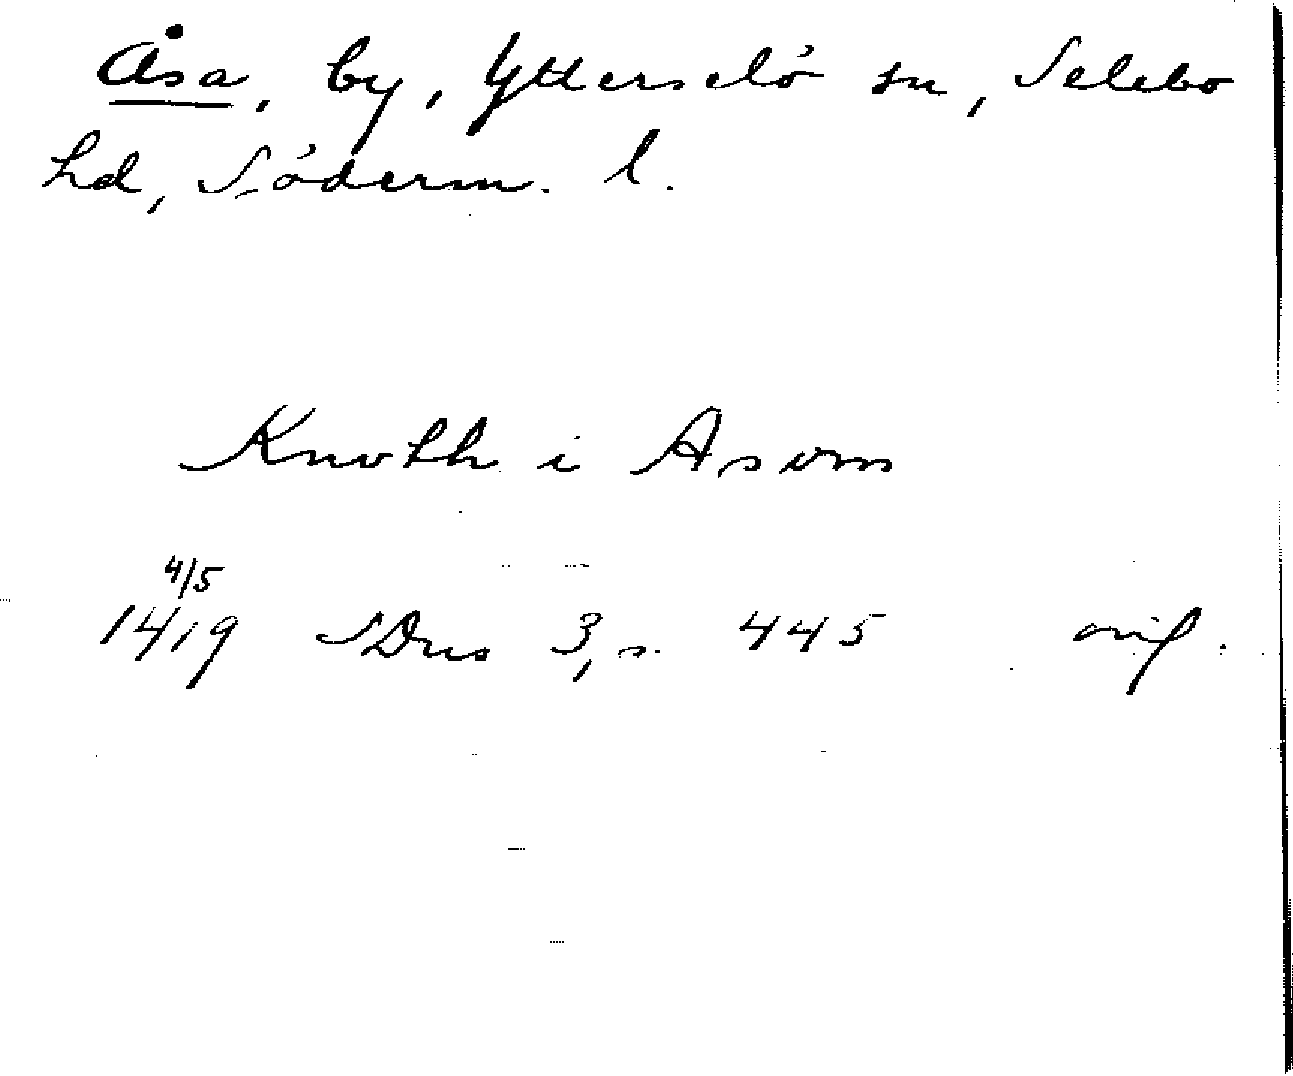 Åsa, by, Ytterselö sn, Selebo
hd, Söderm. l.
Knvth i Asom
4/5
1419 SDns 3, s. 445 orig.